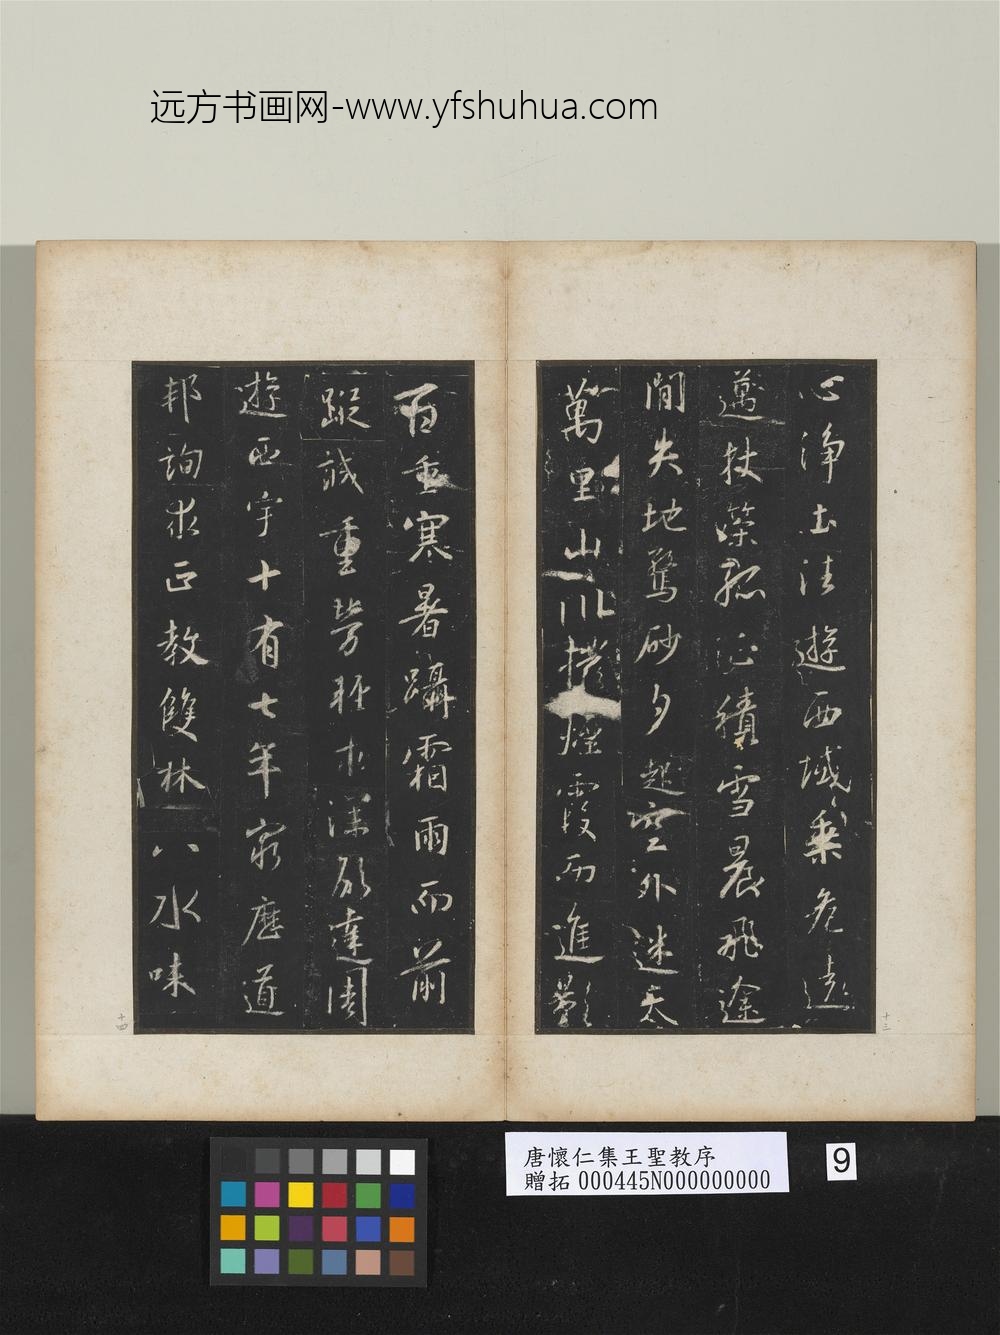 远方书画网-www.yfshuhua.com
心淨土往遊西域乘危遠
邁杖策孤征積雪晨飛途
閒失地驚砂夕起空外迷天
萬里山川撥煙霞而進影
十三
百重寒暑躡霜雨而前
蹤誠重勞輕求深願達周
遊西宇十有七年窮歷道
邦詢求正教雙林八水味
十四
唐懷仁集王聖教序
贈拓 000445N000000000
9